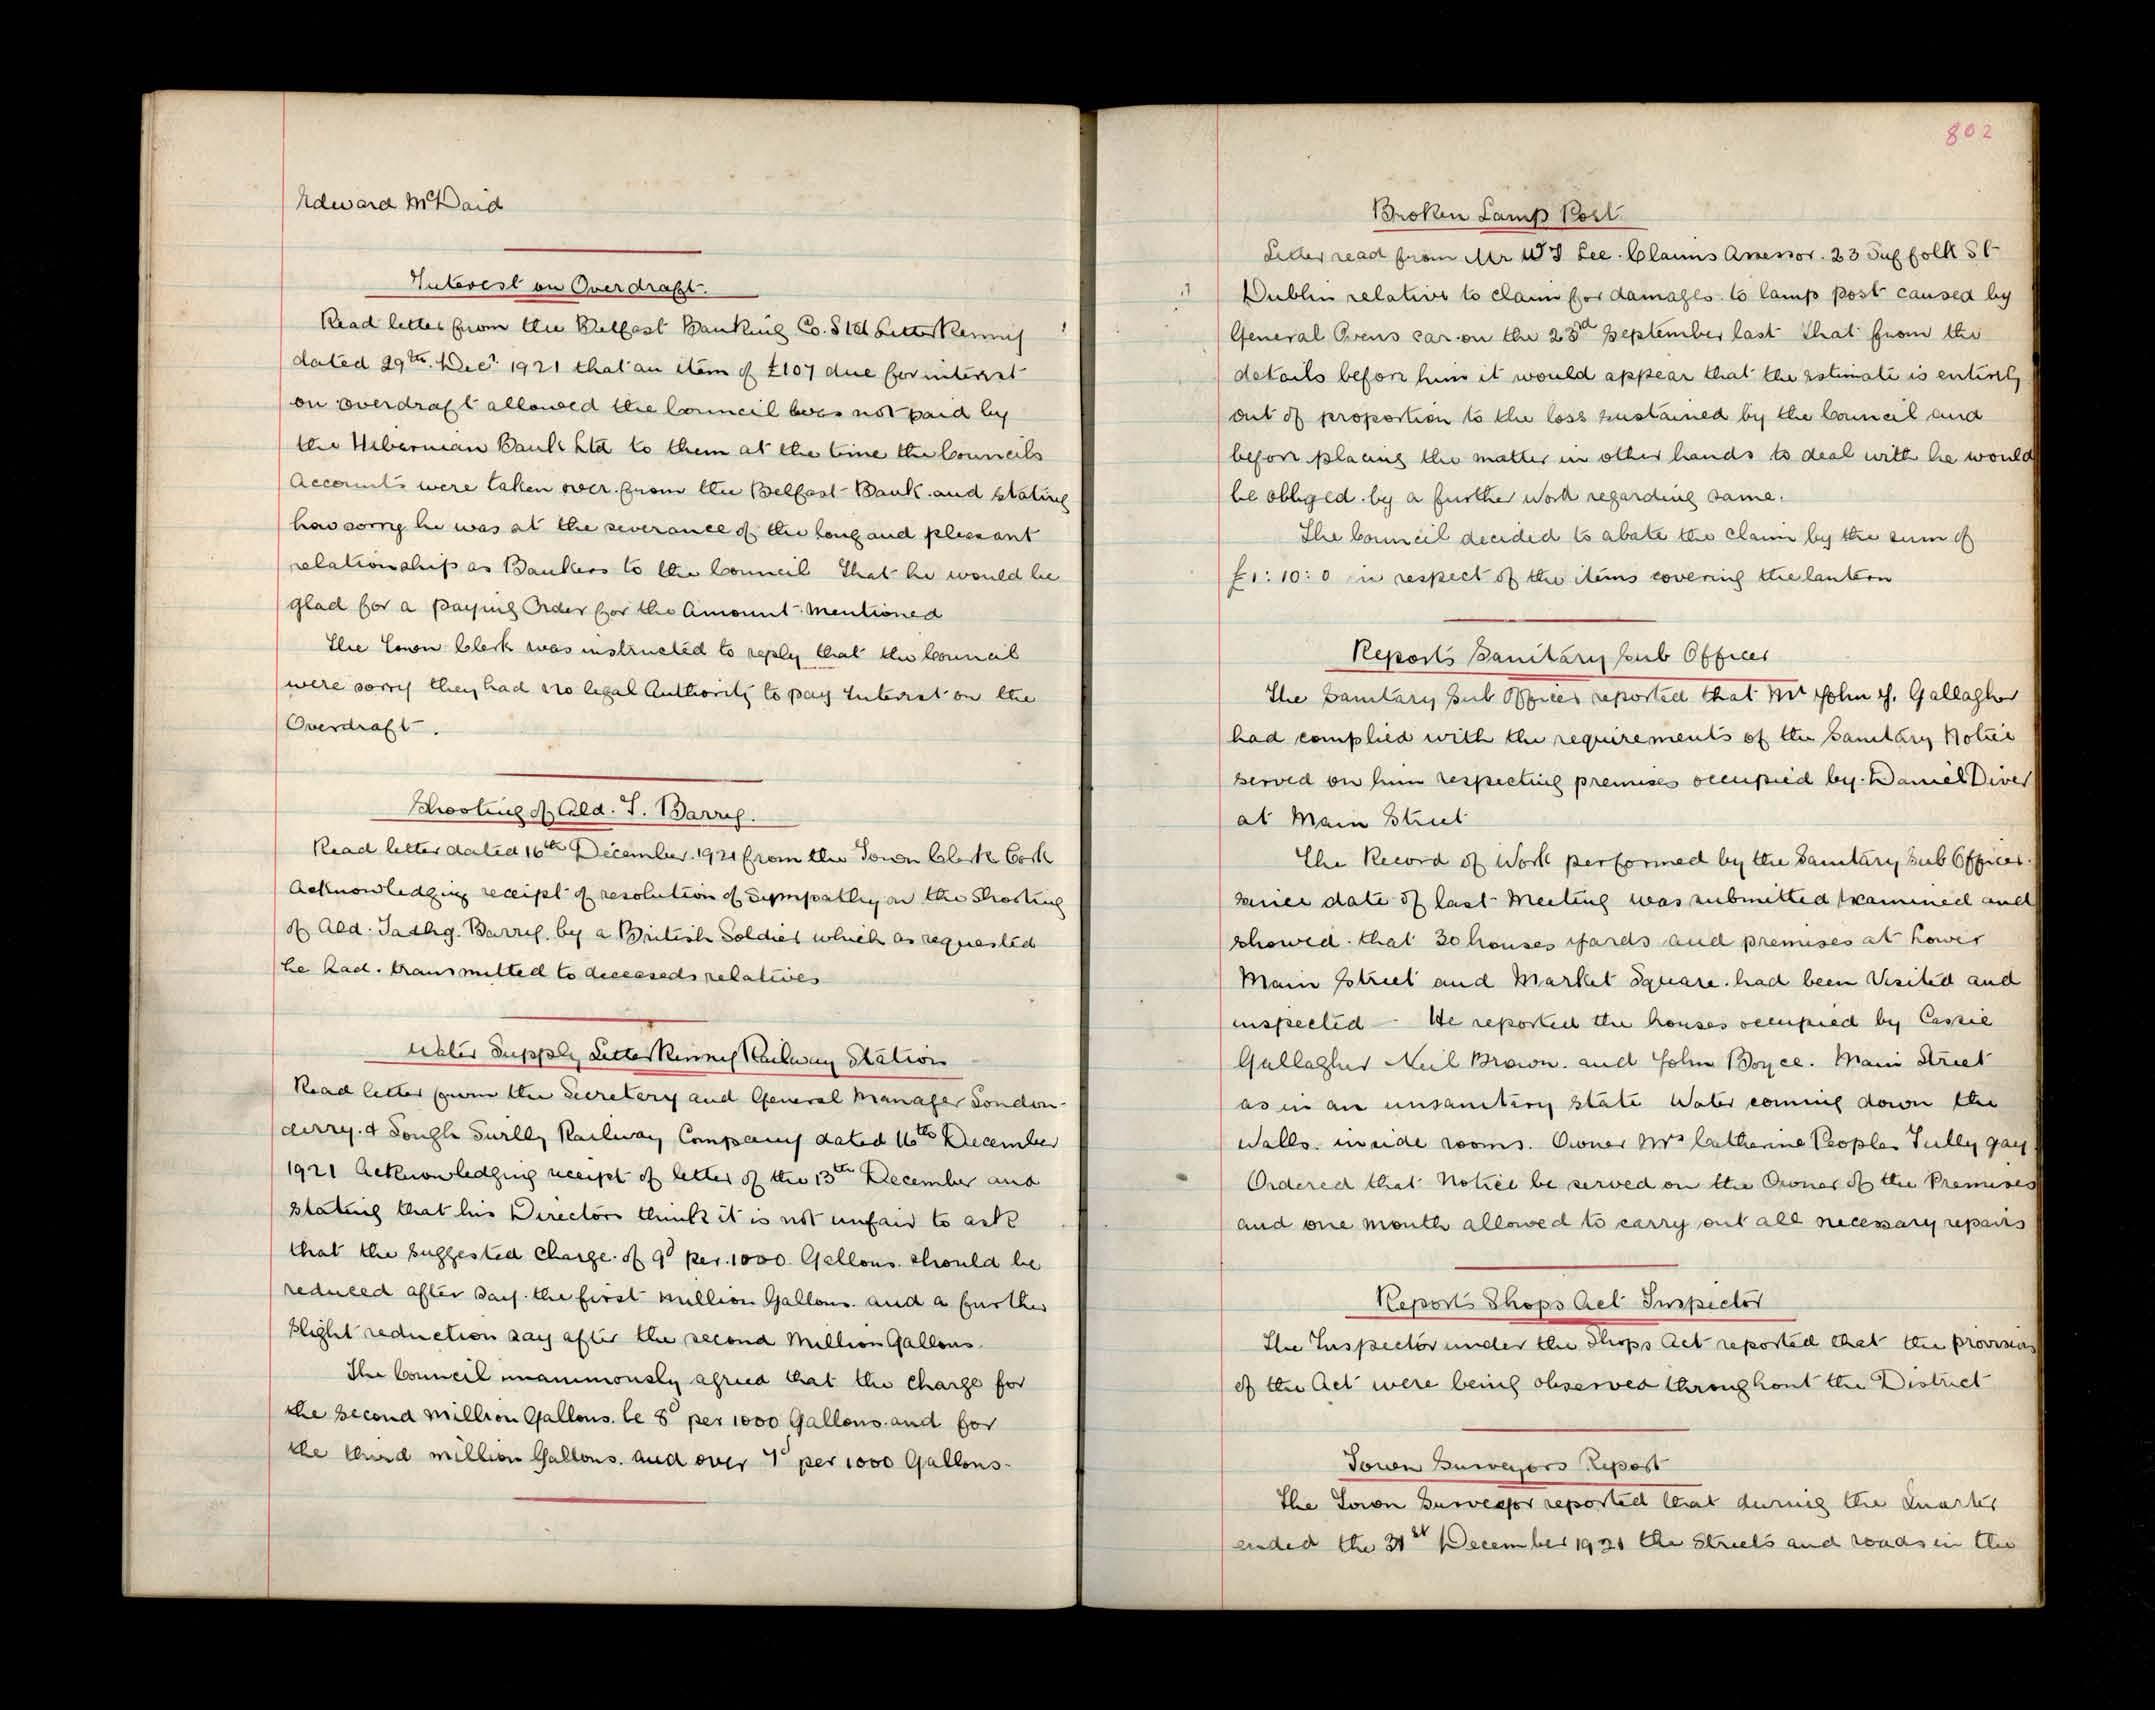 Edward McDaid
Interest on Overdraft.
Read letter from the Belfast Banking Co. Ltd Letterkenny
dated 29th Decr 1921 that an item of £107 due for interest
on overdraft allowed the Council was not paid by
the Hibernian Bank Ltd to them at the time the Councils
Accounts were taken over from the Belfast Bank and stating
how sorry he was at the severance of the long and pleasant
relationship as Bankers to the Council That he would be
glad for a paying Order for the Amount Mentioned
The Town Clerk was instructed to reply that the Council
were sorry they had no legal Authority to pay Interest on the
Overdraft.
Shooting of Ald. T. Barry.
Read letter dated 16th December 1921 from the Town Clerk Cork
Acknowledging receipt of resolution of Sympathy on the Shooting
of Ald. Tadhg. Barry. by a British Soldier which as requested
he had transmitted to deceaseds relatives
Water Supply Letterkenny Railway Station
Read letter from the Secretary and General Manager London-
derry & Lough Swilly Railway Company dated 16th December
1921 Acknowledging receipt of letter of the 13th December and
stating that his Directors think it is not unfair to ask
that the suggested charge of 9d per 1000 Gallons should be
reduced after say the first million Gallons and a further
slight reduction say after the second Million Gallons.
The Council unanimously agreed that the charge for
the second million Gallons be 8d per 1000 Gallons and for
the third million Gallons and over 7d per 1000 Gallons.
802
Broken Lamp Post
Letter read from Mr W J Lee. Claims Assessor. 23 Suffolk St
Dublin relative to claim for damages to lamp post caused by
General Owens car on the 23rd September last That from the
details before him it would appear that the estimate is entirely
out of proportion to the loss sustained by the Council and
before placing the matter in other hands to deal with he would
be obliged by a further word regarding same.
The Council decided to abate the claim by the sum of
£1:10:0 in respect of the items covering the lantern
Reports Sanitary Sub Officer
The Sanitary Sub Officer reported that Mr John J. Gallagher
had complied with the requirements of the Sanitary Notice
served on him respecting premises occupied by Daniel Diver
at Main Street
The Record of Work performed by the Sanitary Sub Officer
since date of last Meeting was submitted examined and
showed that 30 houses yards and premises at Lower
Main Street and Market Square had been Visited and
inspected - He reported the houses occupied by Cassie
Gallagher Neil Brown. and John Boyce. Main Street
as in an unsanitary state Water coming down the
Walls inside rooms. Owner Mrs Catherine Peoples Tullygay.
Ordered that Notice be served on the Owner of the Premises
and one month allowed to carry out all necessary repairs
Reports Shops Act Inspector
The Inspector under the Shops Act reported that the provisions
of the Act were being observed throughout the District
Town Surveyors Report
The Town Surveyor reported that during the Quarter
ended the 31st December 1921 the Streets and roads in the